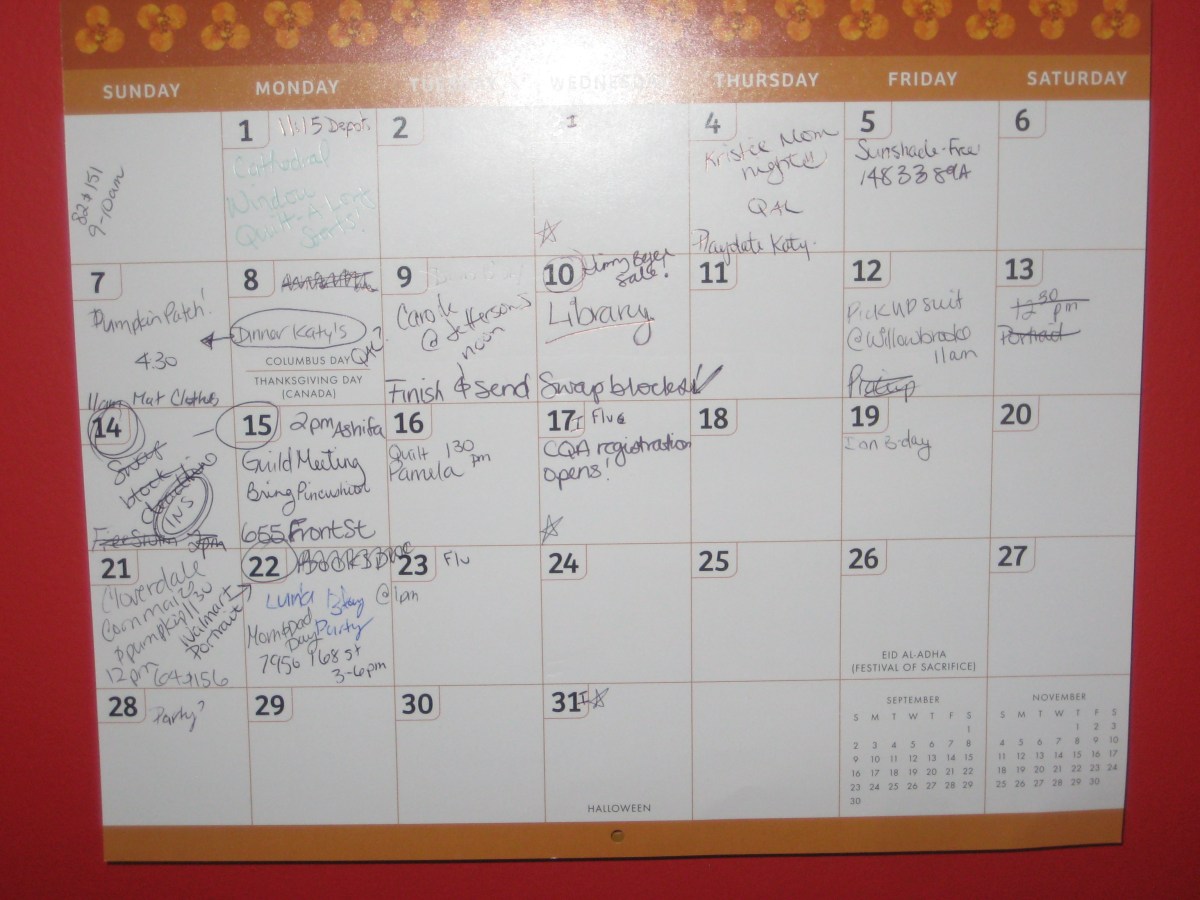 SUNDAY MONDAY TUESDAY WEDNESDAY THURSDAY FRIDAY SATURDAY
82 & 151
9-10am
1 11:15 Depot.
Cathedral
Window
Quilt-A
2
I
4
Kristie Mom
night!!
QAL
Playdate Katy.
5
Sunshade-Free
6
7
Pumpkin Patch!
4:30
11am Mat Clothes
8
Dinner Katy's
QAL?
COLUMBUS DAY
THANKSGIVING DAY
(CANADA)
9
Carole
@ Jefferson's
noon
Finish & send Swap blocks!
10
sale!
Library
11
12
Pick up suit
@Willowbrooke
11am
13
12 30 pm
Portrait
14
Swap
block
deadline
INS
2pm
15 2pm Ashifa
Guild Meeting
Bring Pincushion
655 Front St
16
Quilt 1 30
Pamela pm
17 I Flu
CQA registration
opens!
18
19
Ian B-day
20
21
Cloverdale
Corn maize
& pumpkin
12pm 64 & 156
11 30
Walmart
Portrait
22
Luna Bday @ 1pm
Party
Mom & Dad
Day
7956 168 st
3-6pm
23 Flu
24
25
26
EID AL-ADHA
(FESTIVAL OF SACRIFICE)
27
28 Party?
29
30
31 I
HALLOWEEN
SEPTEMBER
S M T W T F S
1
2 3 4 5 6 7 8
9 10 11 12 13 14 15
16 17 18 19 20 21 22
23 24 25 26 27 28 29
30
NOVEMBER
S M T W T F S
1 2 3
4 5 6 7 8 9 10
11 12 13 14 15 16 17
18 19 20 21 22 23 24
25 26 27 28 29 30